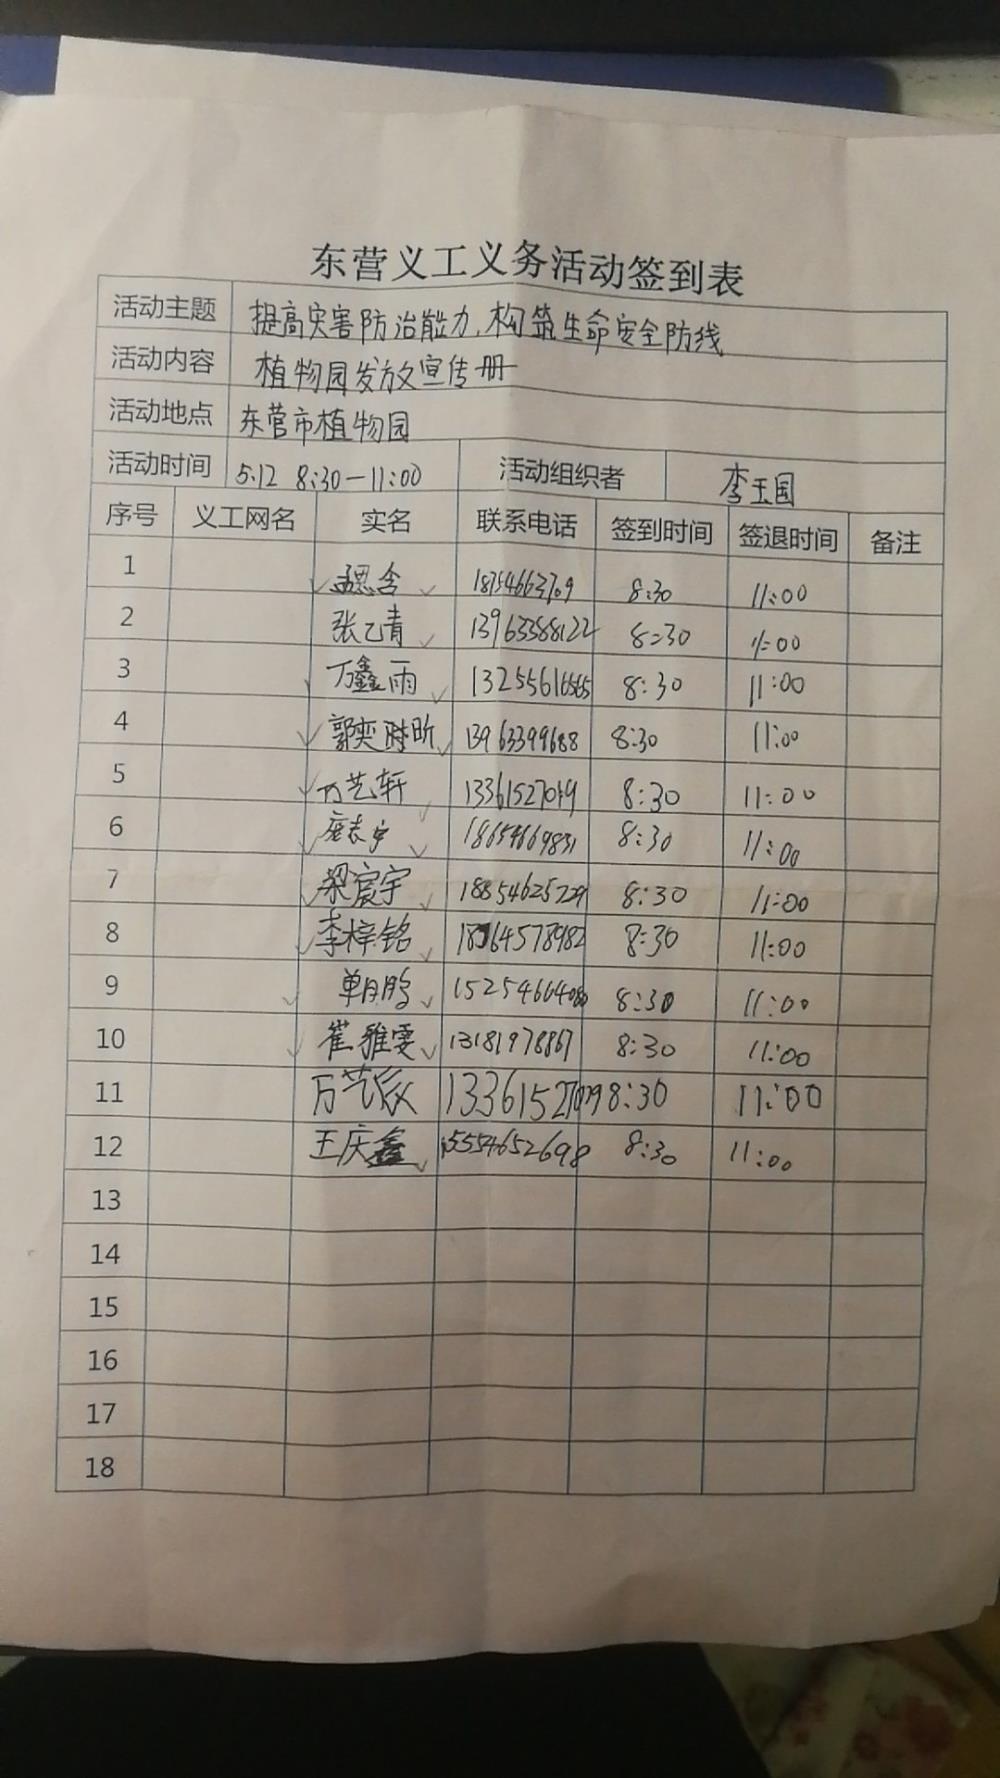 东营义工义务活动签到表
活动主题 提高灾害防治能力,构筑生命安全防线
活动内容 植物园发放宣传册
活动地点 东营市植物园
活动时间 5.12 8:30—11:00 活动组织者 李玉国
序号 义工网名 实名 联系电话 签到时间 签退时间 备注
1 孟思含 18754663709 8:30 11:00
2 张乙青 13963358122 8:30 11:00
3 万鑫雨 13255616565 8:30 11:00
4 13963399688 8:30 11:00
5 万艺轩 8:30 11:00
6 18654669831 8:30 11:00
7 梁宸宇 18854625729 8:30 11:00
8 李梓铭 8:30 11:00
9 单月鹏 8:30 11:00
10 崔雅雯 13181978867 8:30 11:00
11 万艺辰 8:30 11:00
12 王庆鑫 15554652698 8:30 11:00
13
14
15
16
17
18